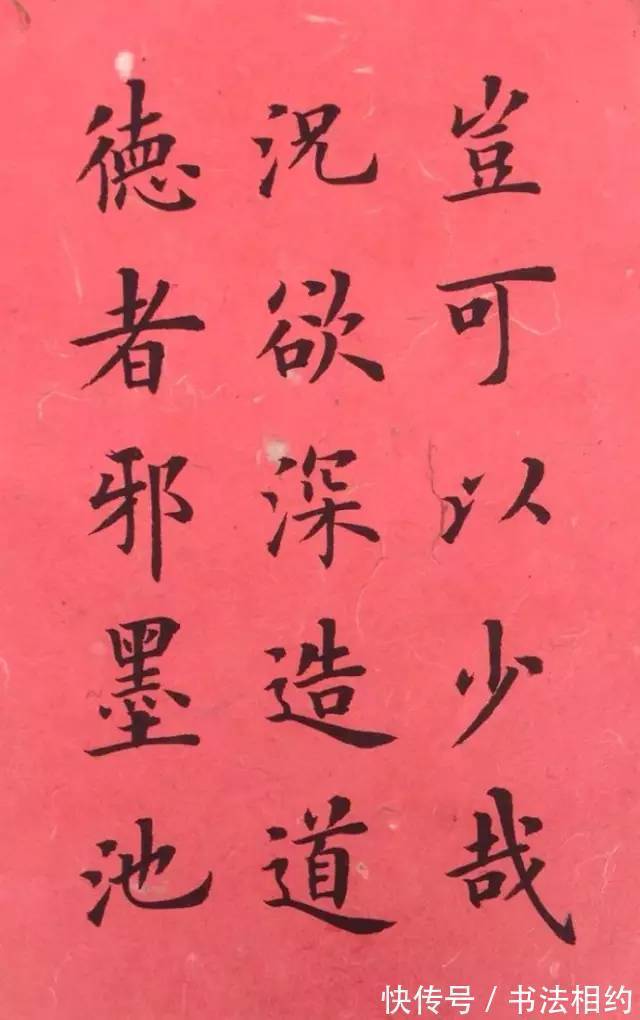 豈可以少哉
況欲深造道
德者邪墨池
快传号 / 书法相约